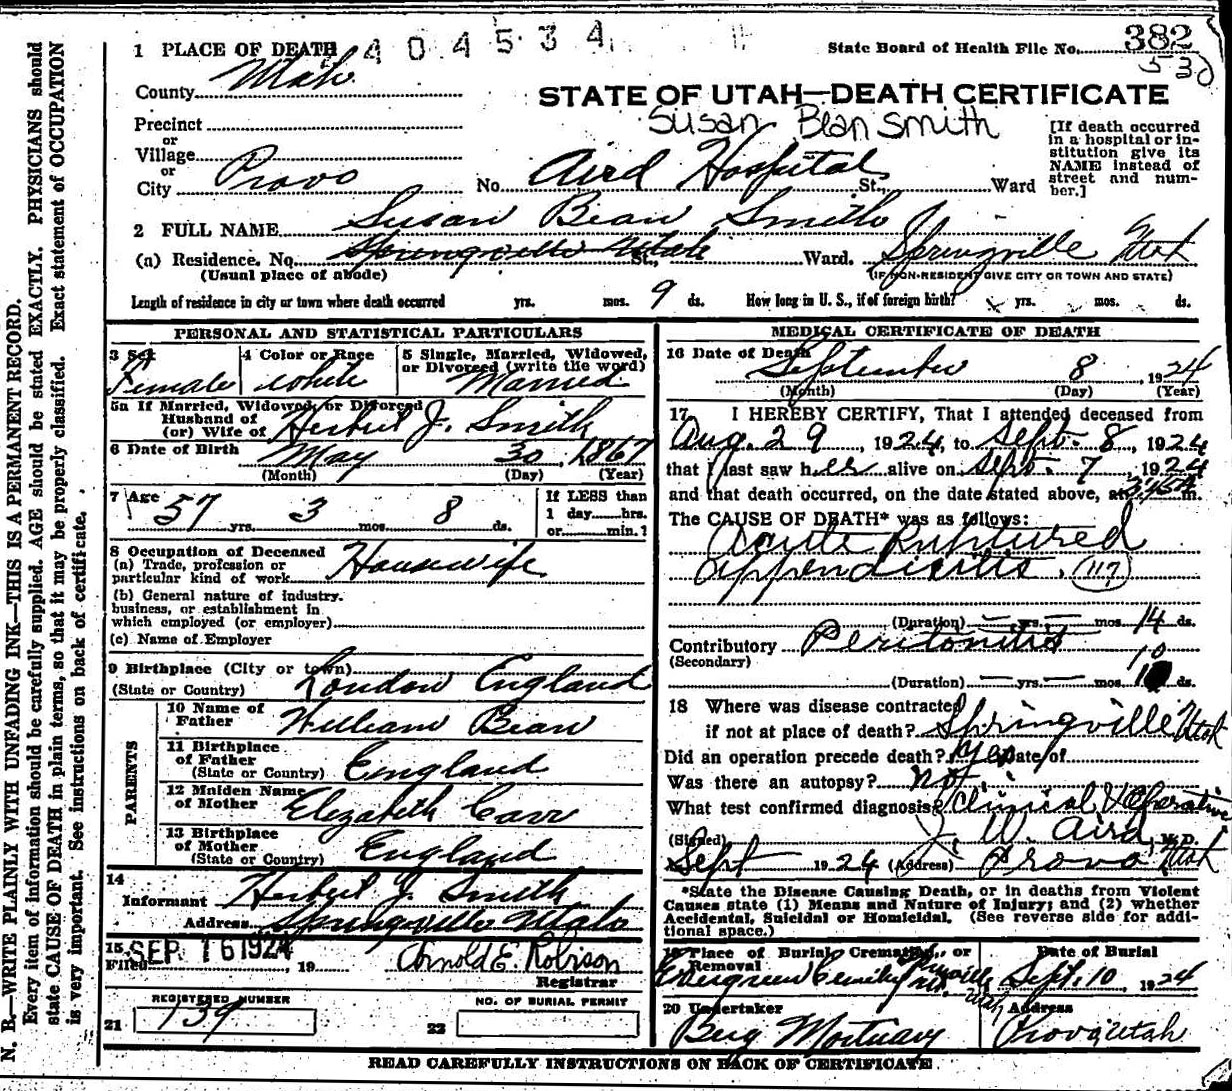 1 PLACE OF DEATH 404534 State Board of Health File No. 382
530
County Utah
STATE OF UTAH—DEATH CERTIFICATE
Susan Bean Smith
Precinct
or
Village
or
City Provo No. Aird Hospital St., Ward
[If death occurred
in a hospital or in-
stitution give its
NAME instead of
street and num-
ber.]
2 FULL NAME Susan Bean Smith
(a) Residence. No. Springville Utah St., Ward. Springville Utah
(Usual place of abode) (IF NON-RESIDENT GIVE CITY OR TOWN AND STATE)
Length of residence in city or town where death occurred yrs. mos. 9 ds. How long in U. S., if of foreign birth? yrs. mos. ds.
PERSONAL AND STATISTICAL PARTICULARS
3 Sex Female
4 Color or Race White
5 Single, Married, Widowed,
or Divorced (write the word)
Married
5a If Married, Widowed, or Divorced
Husband of
(or) Wife of Herbert J. Smith
6 Date of Birth May 30, 1867
(Month) (Day) (Year)
7 Age 57 yrs. 3 mos. 8 ds.
If LESS than
1 day hrs.
or min.?
8 Occupation of Deceased
(a) Trade, profession or
particular kind of work Housewife
(b) General nature of industry,
business, or establishment in
which employed (or employer)
(c) Name of Employer
9 Birthplace (City or town)
(State or Country) London England
PARENTS
10 Name of
Father William Bean
11 Birthplace
of Father
(State or Country) England
12 Maiden Name
of Mother Elizabeth Carr
13 Birthplace
of Mother
(State or Country) England
14
Informant Herbert J. Smith
Address Springville Utah
15 SEP 16 1924
Filed , 19 Arnold E. Robison
Registrar
REGISTERED NUMBER
21 139
NO. OF BURIAL PERMIT
22
MEDICAL CERTIFICATE OF DEATH
16 Date of Death September 8, 1924
(Month) (Day) (Year)
17 I HEREBY CERTIFY, That I attended deceased from
Aug. 29, 1924, to Sept. 8, 1924
that I last saw her alive on Sept. 7, 1924
and that death occurred, on the date stated above, at m.
The CAUSE OF DEATH* was as follows:
Acute Ruptured
Appendicitis. (117)
(Duration) — yrs. — mos. 14 ds.
Contributory Peritonitis
(Secondary) 10
(Duration) — yrs. — mos. ds.
18 Where was disease contracted
if not at place of death? Springville Utah
Did an operation precede death? Yes Date of
Was there an autopsy? Not
What test confirmed diagnosis? Clinical & Operative
(Signed) J. W. Aird, M. D.
Sept 1924 (Address) Provo Utah
*State the Disease Causing Death, or in deaths from Violent
Causes state (1) Means and Nature of Injury; and (2) whether
Accidental, Suicidal or Homicidal. (See reverse side for addi-
tional space.)
19 Place of Burial, Cremation, or
Removal
Evergreen
Utah
Date of Burial
Sept. 10, 1924
20 Undertaker
Berg Mortuary
Address
Provo, Utah
READ CAREFULLY INSTRUCTIONS ON BACK OF CERTIFICATE
N. B.—WRITE PLAINLY WITH UNFADING INK—THIS IS A PERMANENT RECORD.
Every item of information should be carefully supplied. AGE should be stated EXACTLY. PHYSICIANS should
state CAUSE OF DEATH in plain terms, so that it may be properly classified. Exact statement of OCCUPATION
is very important. See instructions on back of certificate.